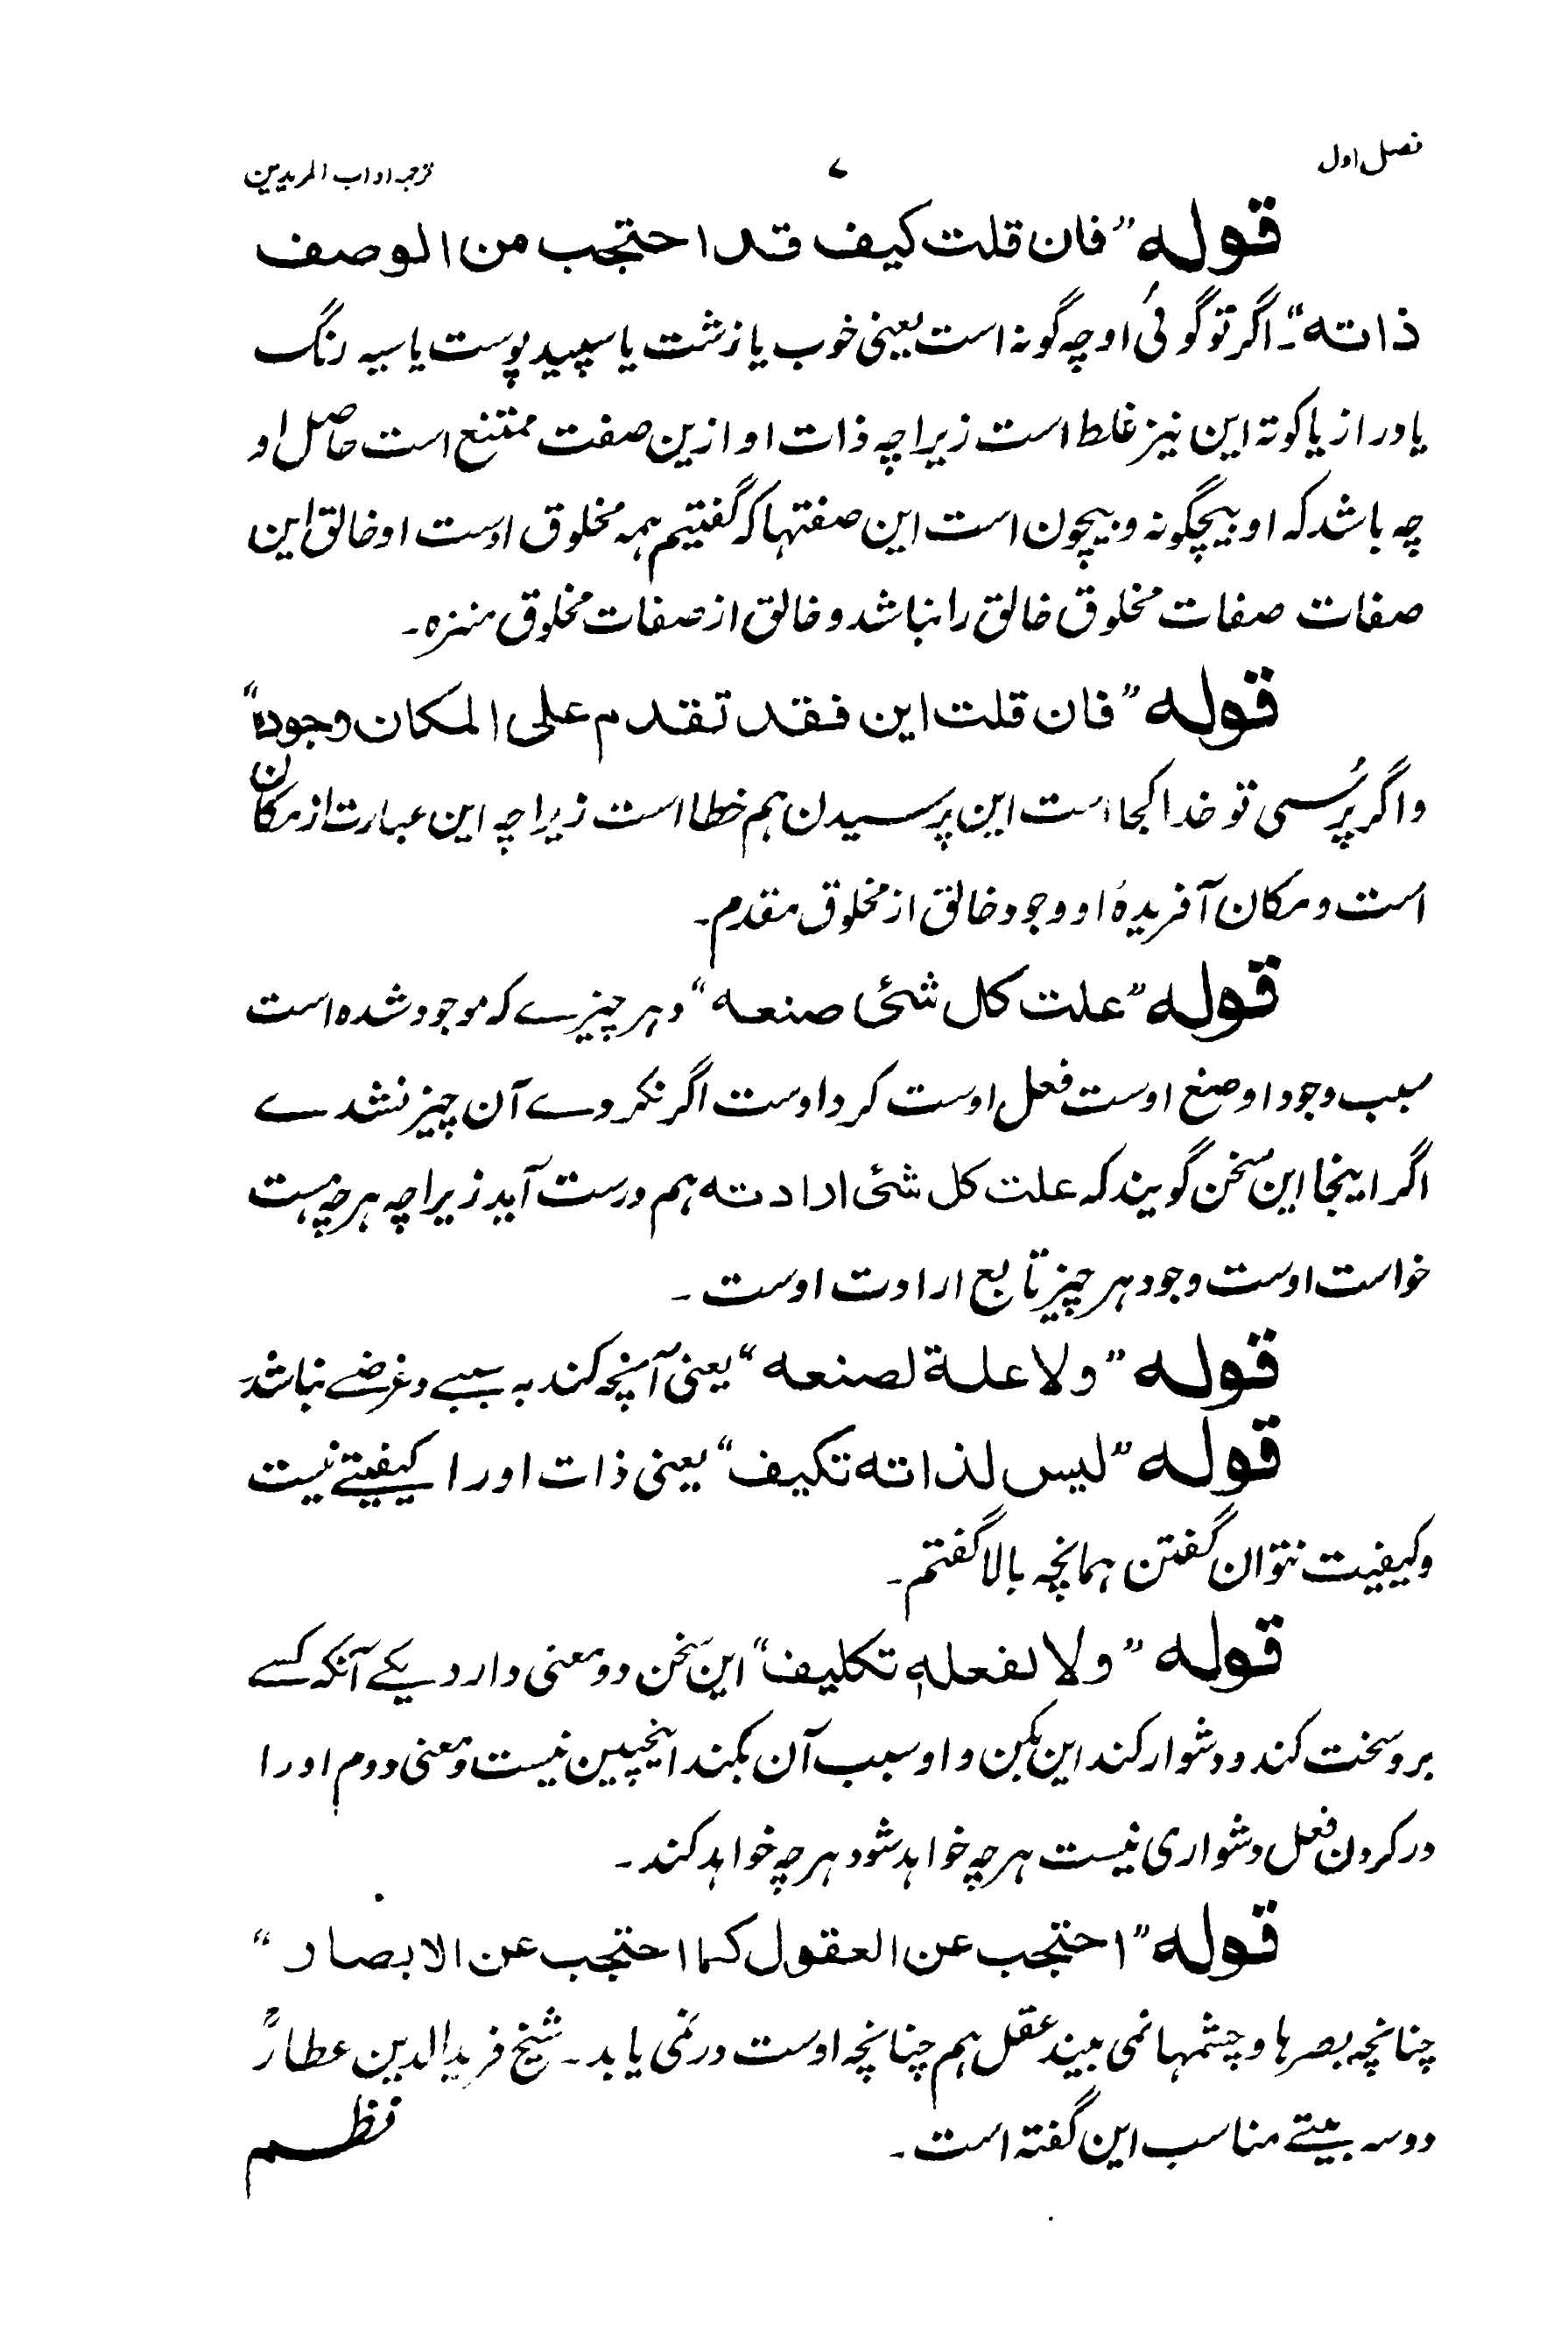 فصل اول ۷ ترجمہ اداب المریدین
قوله ”فان قلت كيف قد احتجب من الوصف
ذاته“۔ اگر تو گوئی او چہ گونہ است یعنی خوب یا زشت یا سپید پوست یا سیہ رنگ
یا دراز یا کوتہ این نیز غلط است زیراچہ ذات او ازین صفت ممتنع است حاصل او
چہ باشد کہ او بیچگونہ و بیچون است این صفتہا کہ گفتیم ہمہ مخلوق اوست او خالق این
صفات صفات مخلوق خالق را نباشد و خالق از صفات مخلوق منزہ۔
قوله ”فان قلت اين فقد تقدم على المكان وجوده“
و اگر پُرسی تو خدا کجا است این پرسیدن ہم خطا است زیراچہ این عبارت از مکان
است و مکان آفریدۂ او وجود خالق از مخلوق مقدم۔
قوله ”علت كل شئى صنعه“ و ہر چیزے کہ موجود شدہ است
سبب وجود او صنع اوست فعل اوست کرد اوست اگر نکردے آن چیز نشدے
اگر اینجا این سخن گویند کہ علت کل شئی ارادته ہم درست آید زیراچہ ہرچہ ہست
خواست اوست وجود ہر چیز تابع ارادت اوست۔
قوله ”ولا علة لصنعه“ یعنی آنچہ کند بہ سببے و غرضے نباشد
قوله ”ليس لذاته تكيف“ یعنی ذات او را کیفیتے نیست
و کیفیت نتوان گفتن ہمانچہ بالا گفتم۔
قوله ”ولا لفعله تكليف“ این سخن دو معنی دارد یکے آنکہ کسے
برو سخت کند و دشوار کند این بکن و او سبب آن بکند اینچپین نیست و معنی دوم او را
در کردن فعل دشواری نیست ہرچہ خواہد شود ہرچہ خواہد کند۔
قوله ”احتجب عن العقول كما احتجب عن الابصار“
چنانچہ بصرہا و چشمہا نمی بیند عقل ہم چنانچہ اوست در نمی یابد۔ شیخ فرید الدین عطارؒ
دو سہ بیتے مناسب این گفتہ است۔ نظم